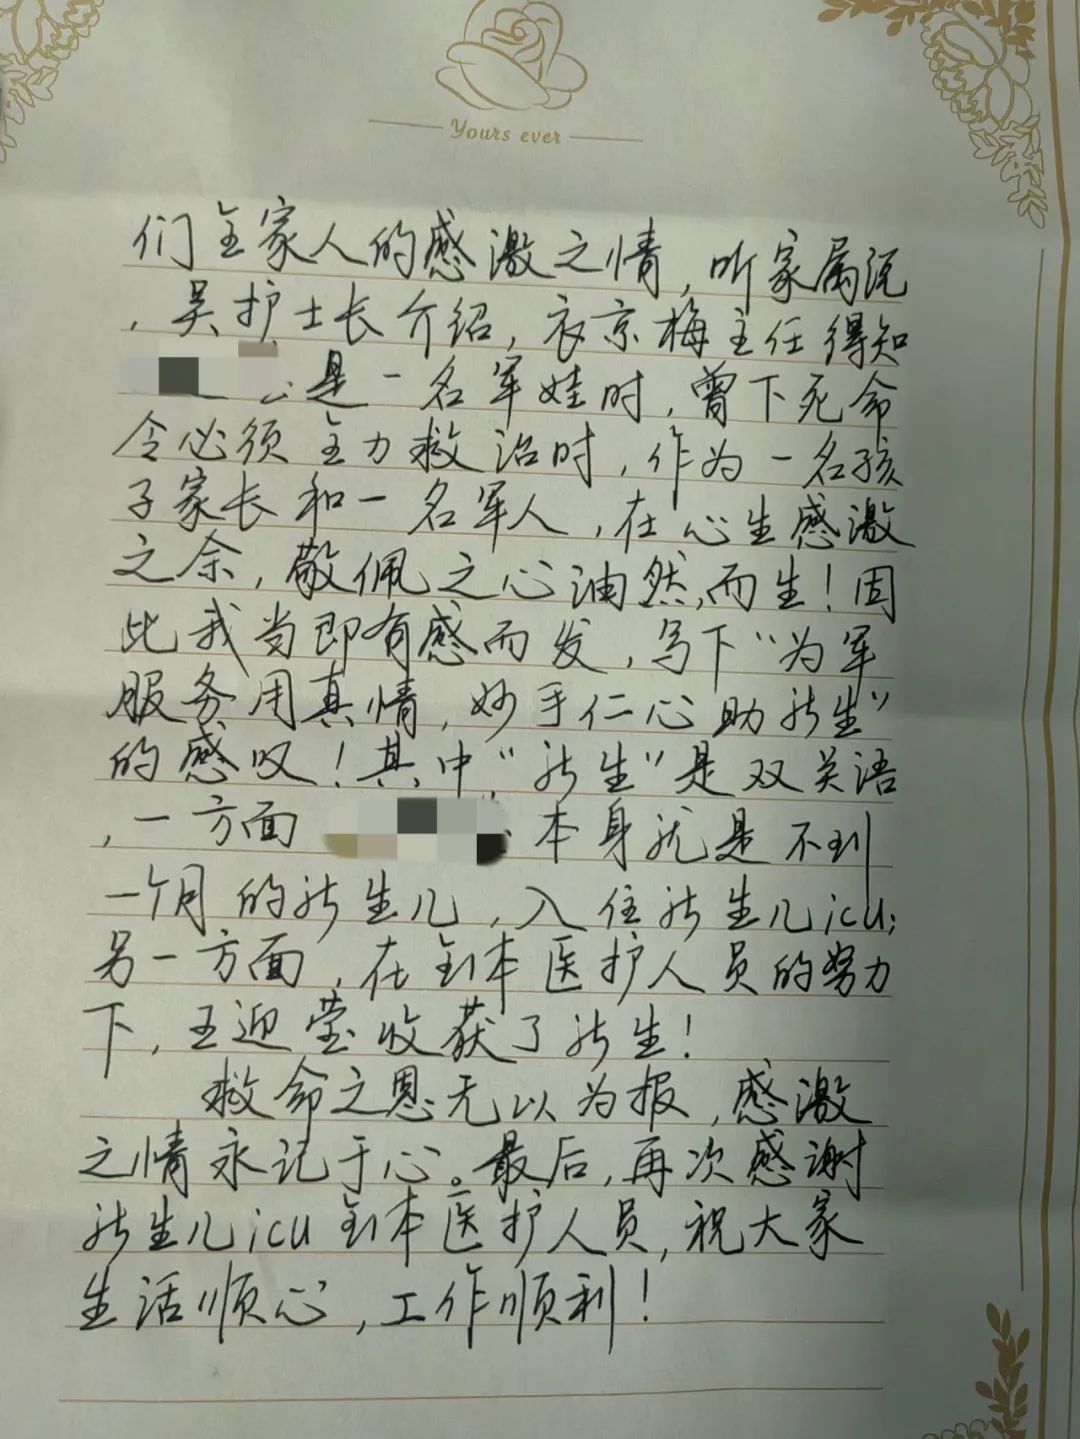 Yours ever
们全家人的感激之情，听家属说
，吴护士长介绍，衣京梅主任得知
是一名军娃时，曾下死命
令必须全力救治时，作为一名孩
子家长和一名军人，在心生感激
之余，敬佩之心油然而生！因
此我当即有感而发，写下“为军
服务用真情，妙手仁心助新生”
的感叹！其中“新生”是双关语
，一方面 本身就是不到
一个月的新生儿，入住新生儿icu；
另一方面，在全体医护人员的努力
下，王迎莹收获了新生！
救命之恩无以为报，感激
之情永记于心。最后，再次感谢
新生儿icu全体医护人员，祝大家
生活顺心，工作顺利！